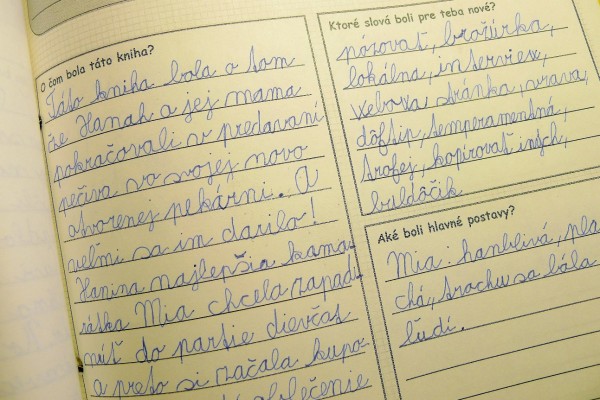 O čom bola táto kniha?
Táto kniha bola o tom
že Hanah a jej mama
pokračovali v predavaní
pečiva vo svojej novo
otvorenej pekárni. A
veľmi sa im darilo!
Hanina najlepšia kama-
rátka Mia chcela zapad-
núť do partie dievčat
a preto si začala kupo-
oblečenie
Ktoré slová boli pre teba nové?
pózovať, brožúrka,
lokálna, interview,
webova stránka, vrava,
dôvtip, temperamentná,
trofej, kopírovať iných,
buldôčik
Aké boli hlavné postavy?
Mia: hanblivá, pla-
chá, trachu sa bála
ľudí.